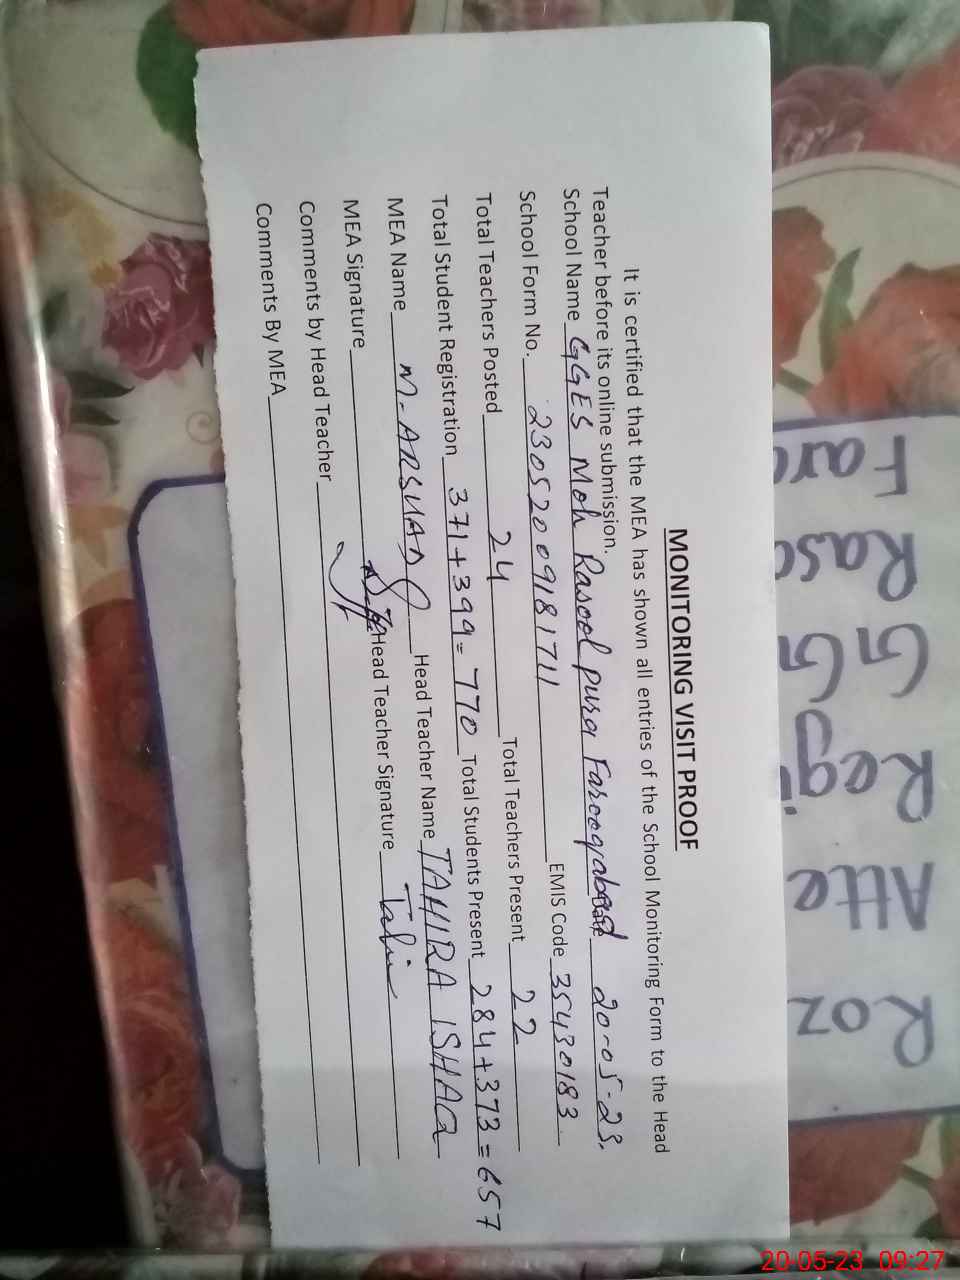 MONITORING VISIT PROOF
It is certified that the MEA has shown all entries of the School Monitoring Form to the Head
Teacher before its online submission.
School Name GGES Moh Rasool pura Farooqabad Date 20-05-23.
School Form No. 23052009181711 EMIS Code 35430183
Total Teachers Posted 24 Total Teachers Present 22
Total Student Registration 371+399=770 Total Students Present 284+373=657
MEA Name M-ARSHAD Head Teacher Name TAHIRA ISHAQ
MEA Signature Head Teacher Signature
Comments by Head Teacher
Comments By MEA
Roz
Atte
Regi
GG
Raso
Faro
20-05-23 09:27